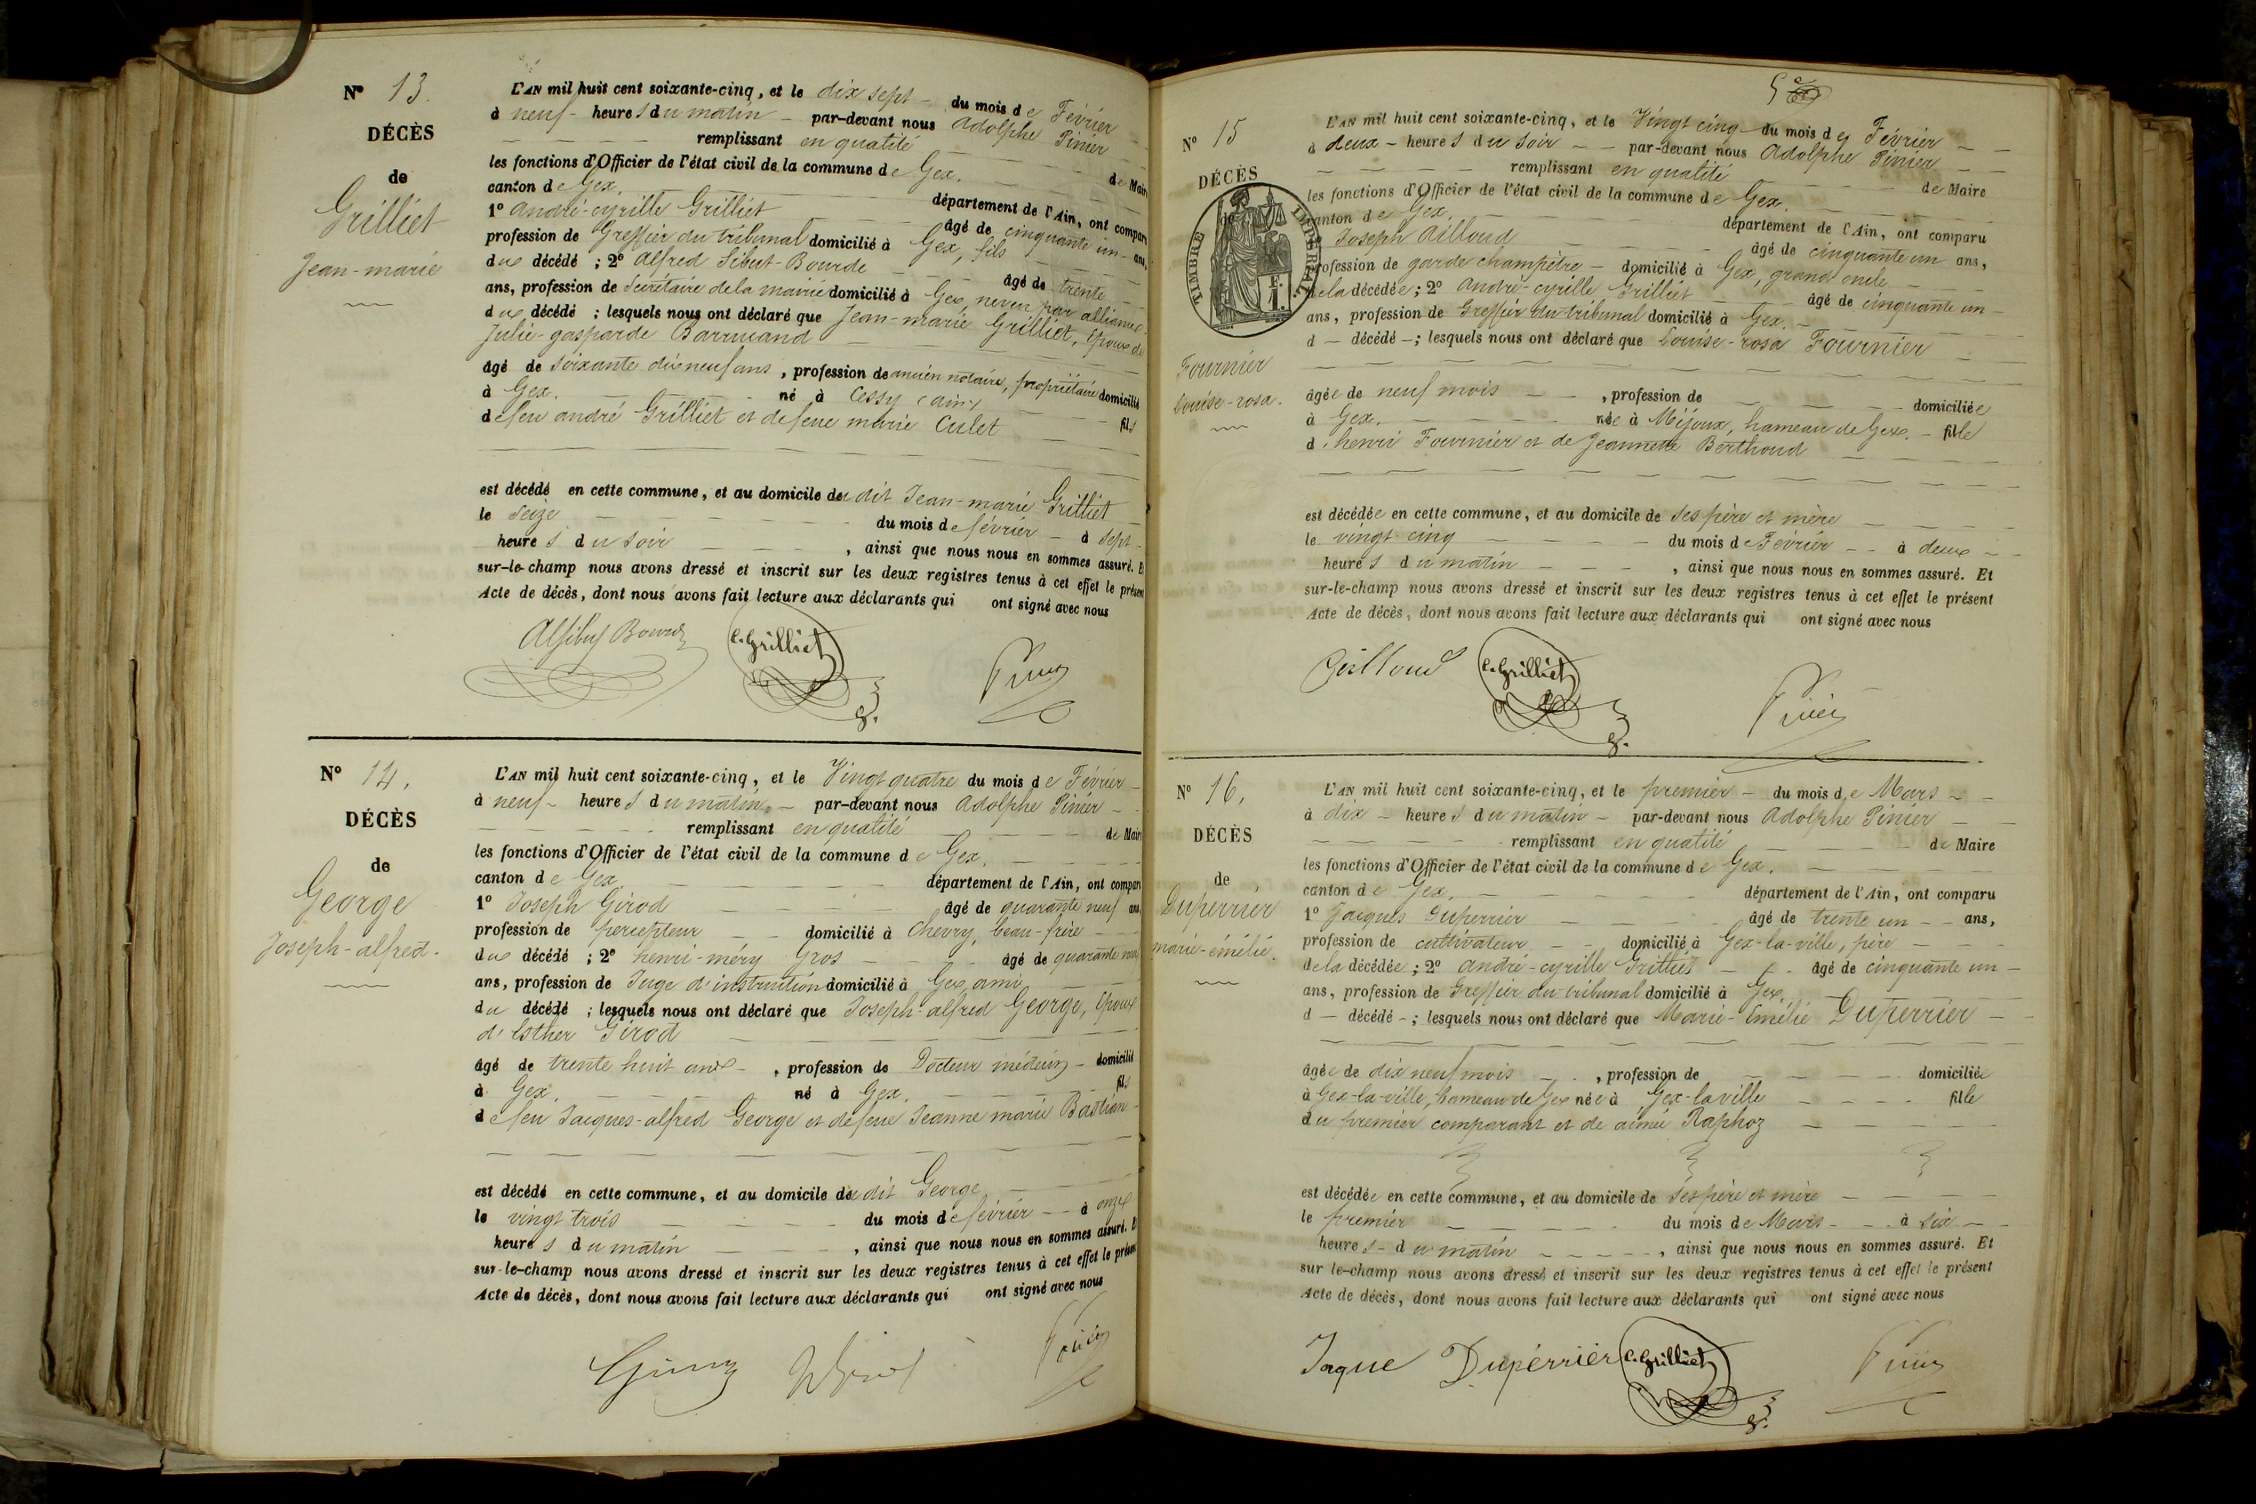 N° 13.
DÉCÈS
de
Grilliet
Jean-marie
L'AN mil huit cent soixante-cinq, et le dix sept du mois de Février
à neuf heures du matin par-devant nous Adolphe Pinier
remplissant en qualité de Maire
les fonctions d'Officier de l'état civil de la commune de Gex.
canton de Gex. département de l'Ain, ont comparu
1° André-cyrille Grilliet âgé de cinquante un ans,
profession de Greffier du tribunal domicilié à Gex, fils
du décédé ; 2° Alfred Sibut-Bourde âgé de trente
ans, profession de Secrétaire de la mairie domicilié à Gex, neveu par alliance
du décédé ; lesquels nous ont déclaré que Jean-marie Grilliet, Epoux de
Julie-gasparde Barruand
âgé de soixante dix neuf ans, profession de ancien notaire, propriétaire domicilié
à Gex. né à Cessy (ain) fils
de feu andré Grilliet et de feue marie Culet
est décédé en cette commune, et au domicile du dit Jean-marie Grilliet
le Seize du mois de février à sept
heures du soir, ainsi que nous nous en sommes assuré. Et
sur-le-champ nous avons dressé et inscrit sur les deux registres tenus à cet effet le présent
Acte de décès, dont nous avons fait lecture aux déclarants qui ont signé avec nous
c. Grilliet Pinier
N° 14.
DÉCÈS
de
George
Joseph-alfred.
L'AN mil huit cent soixante-cinq, et le Vingt quatre du mois de Février
à neuf heures du matin par-devant nous Adolphe Pinier
remplissant en qualité de Maire
les fonctions d'Officier de l'état civil de la commune de Gex.
canton de Gex département de l'Ain, ont comparu
1° Joseph Girod âgé de quarante neuf ans,
profession de percepteur domicilié à Chevry, beau-frère
du décédé ; 2° henri-méry Gros âgé de quarante
ans, profession de Juge d'instruction domicilié à Gex, ami
du décédé ; lesquels nous ont déclaré que Joseph-alfred George, Epoux
d'Esther Girod
âgé de trente huit ans, profession de Docteur médecin domicilié
à Gex. né à Gex. fils
de feu Jacques-alfred George et de feue Jeanne marie Bastian
est décédé en cette commune, et au domicile du dit George
le vingt trois du mois de février à onze
heures du matin, ainsi que nous nous en sommes assuré. Et
sur-le-champ nous avons dressé et inscrit sur les deux registres tenus à cet effet le présent
Acte de décès, dont nous avons fait lecture aux déclarants qui ont signé avec nous
Pinier
5
N° 15
DÉCÈS
de
TIMBRE IMPÉRIAL
Fournier
Louise-rosa.
L'AN mil huit cent soixante-cinq, et le Vingt cinq du mois de Février
à deux heures du soir par-devant nous Adolphe Pinier
remplissant en qualité de Maire
les fonctions d'Officier de l'état civil de la commune de Gex.
canton de Gex. département de l'Ain, ont comparu
Joseph Ailloud âgé de cinquante un ans,
profession de garde champêtre domicilié à Gex, grand oncle
de la décédée ; 2° André-cyrille Grilliet âgé de cinquante un
ans, profession de Greffier du tribunal domicilié à Gex.
d décédé ; lesquels nous ont déclaré que Louise-rosa Fournier
âgée de neuf mois, profession de domiciliée
à Gex. née à Mijoux, hameau de Gex. fille
d'henri Fournier et de Jeannette Berthoud
est décédée en cette commune, et au domicile de ses père et mère
le vingt cinq du mois de Février à deux
heures du matin, ainsi que nous nous en sommes assuré. Et
sur-le-champ nous avons dressé et inscrit sur les deux registres tenus à cet effet le présent
Acte de décès, dont nous avons fait lecture aux déclarants qui ont signé avec nous
Ailloud c. Grilliet Pinier
N° 16.
DÉCÈS
de
Duperrier
marie-émélie.
L'AN mil huit cent soixante-cinq, et le premier du mois de Mars
à dix heures du matin par-devant nous Adolphe Pinier
remplissant en qualité de Maire
les fonctions d'Officier de l'état civil de la commune de Gex.
canton de Gex. département de l'Ain, ont comparu
1° Jacques Duperrier âgé de trente un ans,
profession de cultivateur domicilié à Gex-la-ville, père
de la décédée ; 2° André-cyrille Grilliet âgé de cinquante un
ans, profession de Greffier du tribunal domicilié à Gex.
d décédé ; lesquels nous ont déclaré que Marie-Emélie Duperrier
âgée de dix neuf mois, profession de domiciliée
à Gex-la-ville, hameau de Gex née à Gex-la ville fille
du premier comparant et de aimée Raphoz
est décédée en cette commune, et au domicile de ses père et mère
le premier du mois de Mars à six
heures du matin, ainsi que nous nous en sommes assuré. Et
sur le-champ nous avons dressé et inscrit sur les deux registres tenus à cet effet le présent
Acte de décès, dont nous avons fait lecture aux déclarants qui ont signé avec nous
Jaque Dupérrier c. Grilliet Pinier